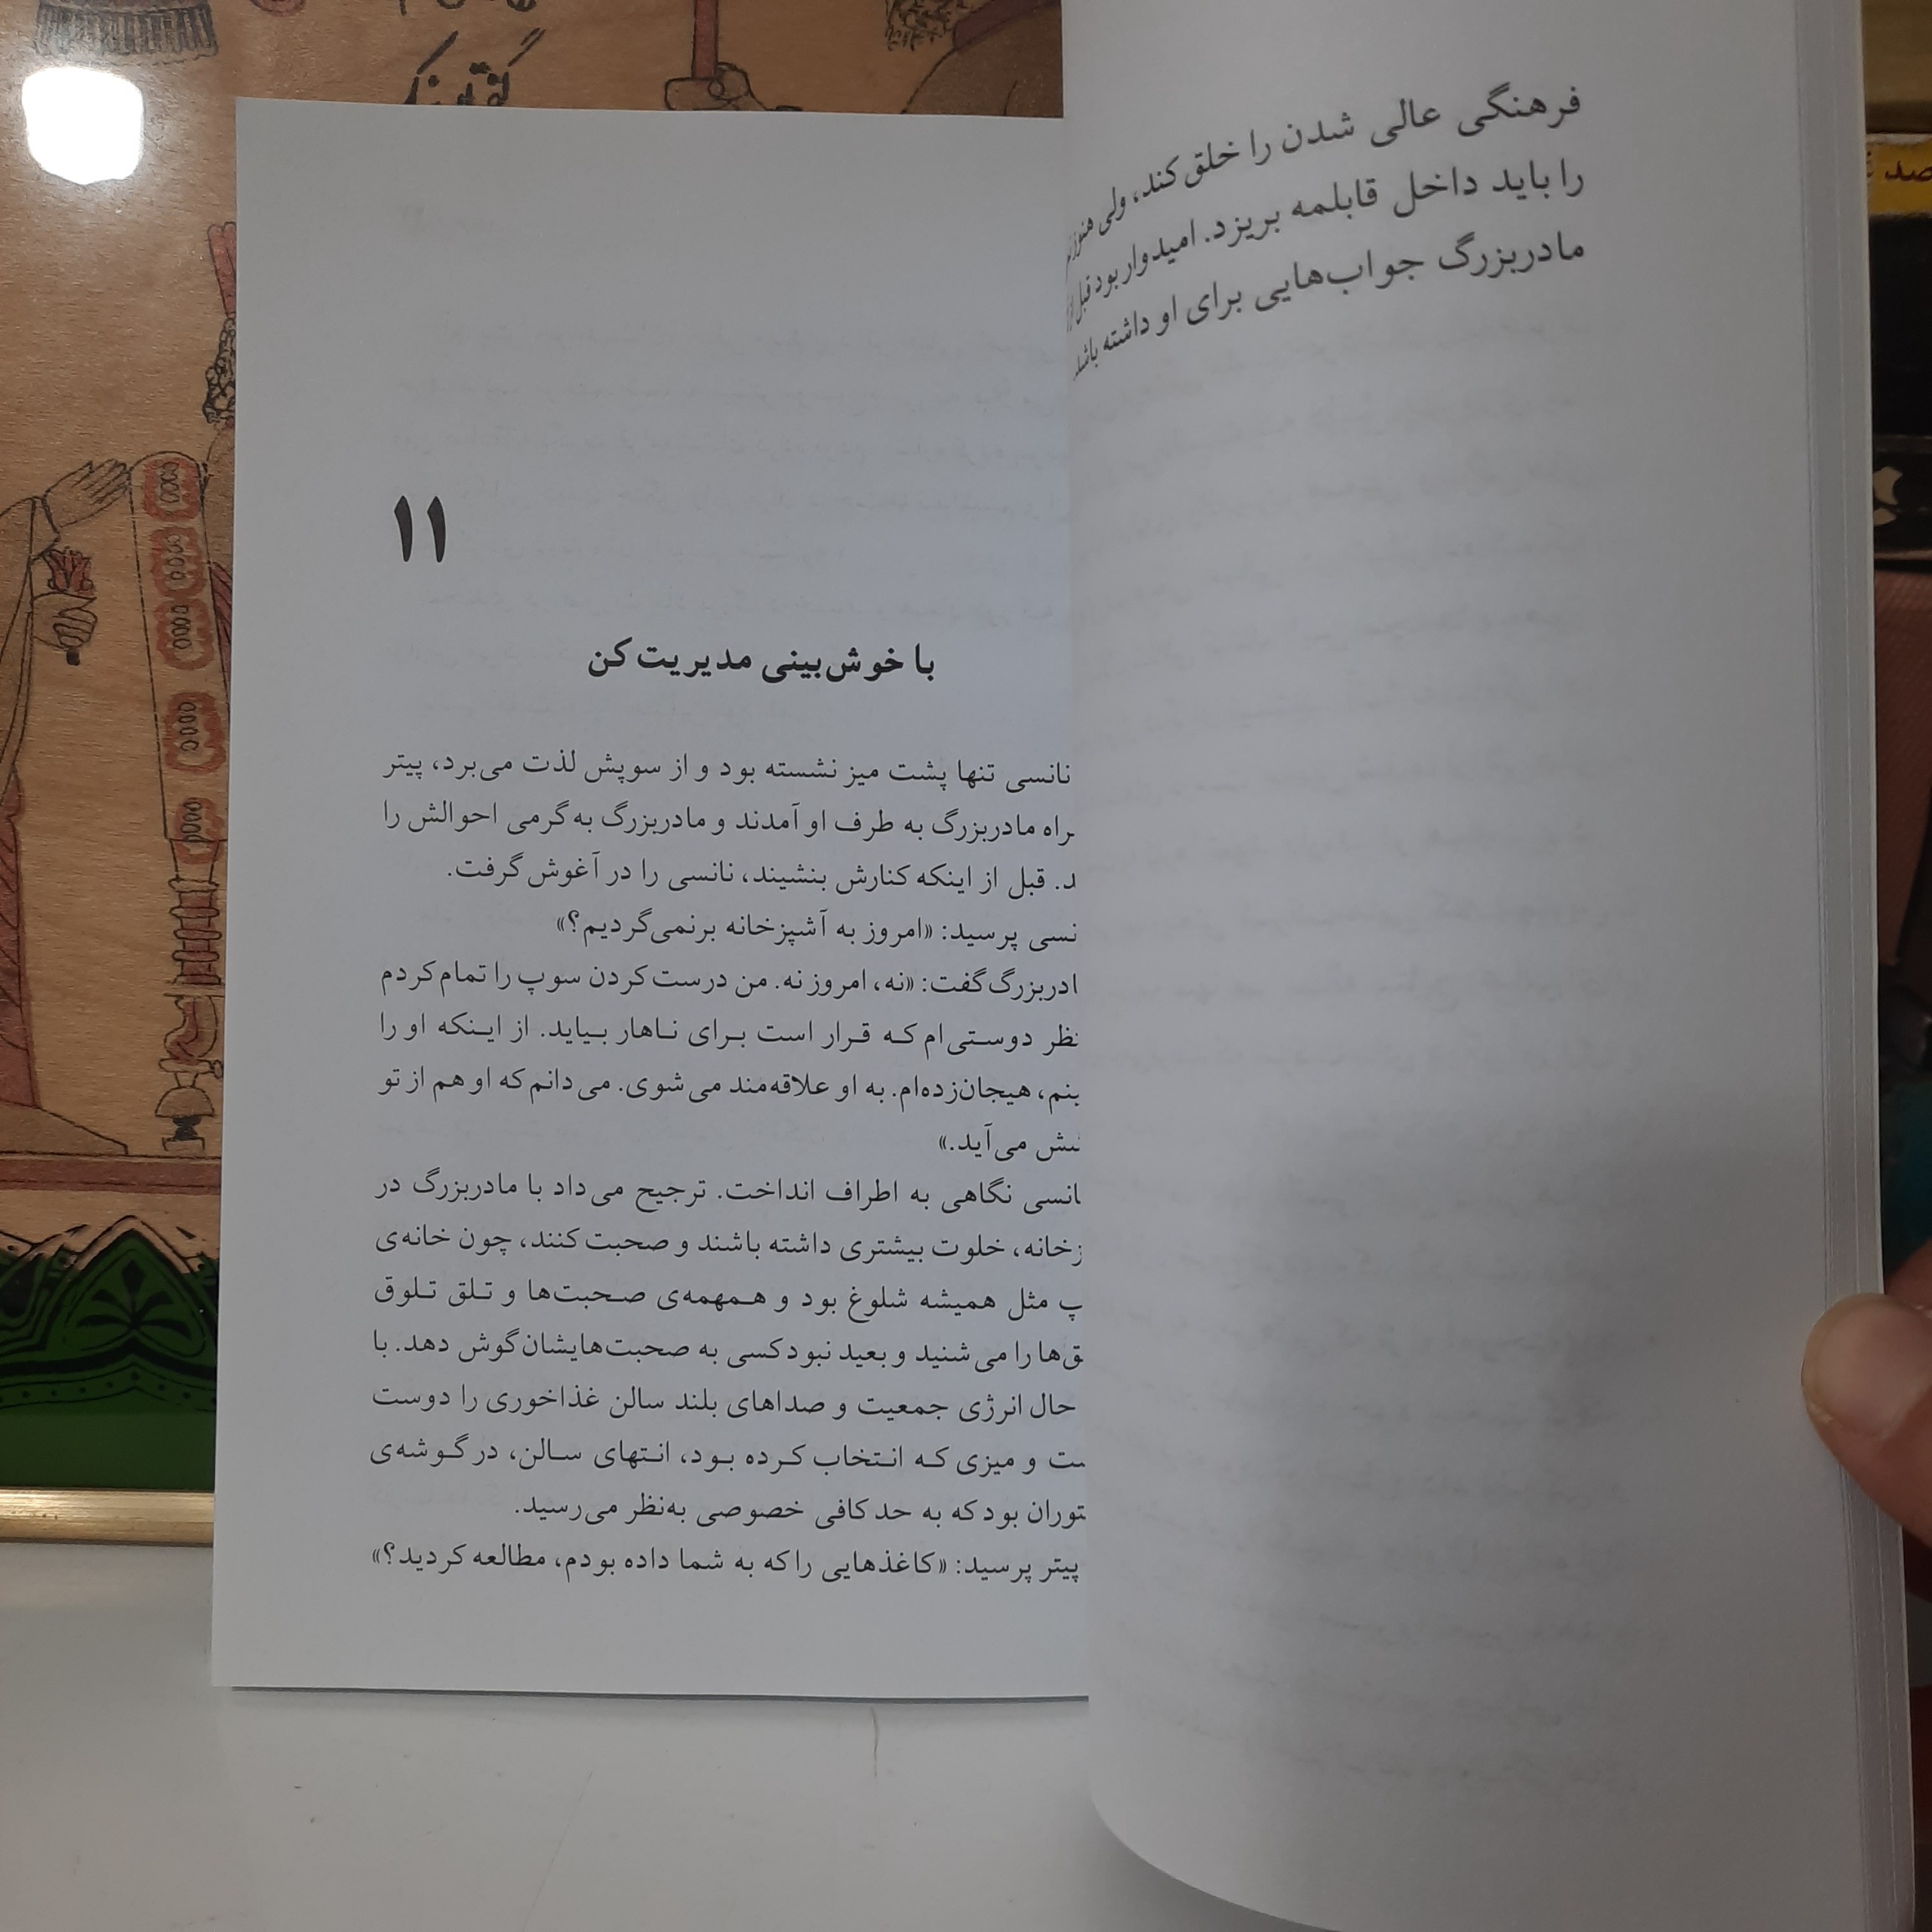 فرهنگی عالی شدن را خلق کند، ولی هنوز
را باید داخل قابلمه بریزد. امیدوار بود قبل از
مادربزرگ جواب‌هایی برای او داشته باشد
۱۱
با خوش‌بینی مدیریت کن
نانسی تنها پشت میز نشسته بود و از سوپش لذت می‌برد، پیتر
راه مادربزرگ به طرف او آمدند و مادربزرگ به گرمی احوالش را
د. قبل از اینکه کنارش بنشیند، نانسی را در آغوش گرفت.
نسی پرسید: «امروز به آشپزخانه برنمی‌گردیم؟»
ادربزرگ گفت: «نه، امروز نه. من درست کردن سوپ را تمام کردم
نظر دوستی‌ام که قرار است برای ناهار بیاید. از اینکه او را
بنم، هیجان‌زده‌ام. به او علاقه‌مند می‌شوی. می‌دانم که او هم از تو
ش می‌آید.»
انسی نگاهی به اطراف انداخت. ترجیح می‌داد با مادربزرگ در
زخانه، خلوت بیشتری داشته باشند و صحبت کنند، چون خانه‌ی
پ مثل همیشه شلوغ بود و همهمه‌ی صحبت‌ها و تلق تلوق
ق‌ها را می‌شنید و بعید نبود کسی به صحبت‌هایشان گوش دهد. با
حال انرژی جمعیت و صداهای بلند سالن غذاخوری را دوست
ست و میزی که انتخاب کرده بود، انتهای سالن، در گوشه‌ی
توران بود که به حد کافی خصوصی به‌نظر می‌رسید.
پیتر پرسید: «کاغذهایی را که به شما داده بودم، مطالعه کردید؟»
صد